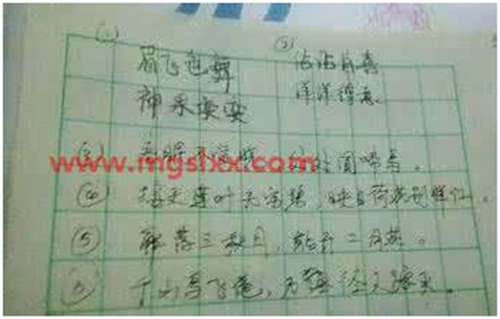 (1) 眉飞色舞 (2) 沾沾自喜
神采奕奕 洋洋得意
www.mgslxx.com
不觉 处闻啼鸟。
(4) 接天莲叶无穷碧，映日荷花别样红。
(5) 解落三秋月，能开二月花。
千山鸟飞绝，万径人踪灭。